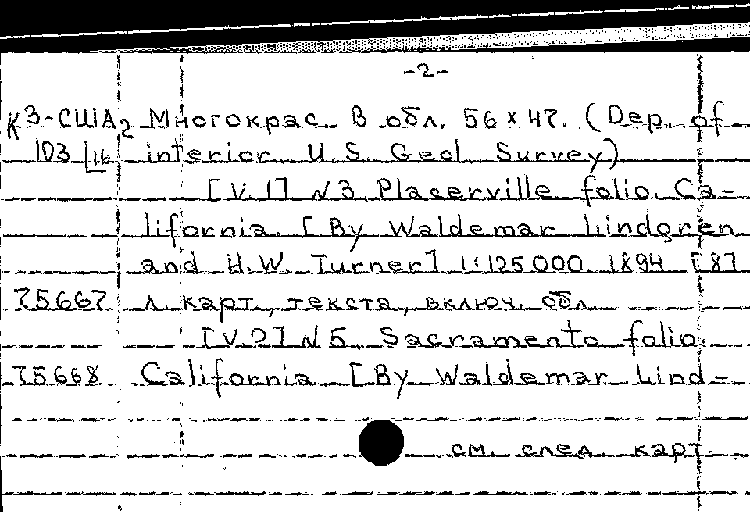 -2-
К3-США2 Многокрас. В обл. 56 x 47. (Dep. of
103 |16 interior. U.S. Geol. Survey)
[V.1] N3 Placerville folio. Ca-
lifornia. [By Waldemar Lindgren
and H.W. Turner] 1:125000 1894 [8]
75667 л. карт, текста, включ. обл.
[V.2] N5 Sacramento folio.
75668 California [By Waldemar Lind-
см. след. карт.